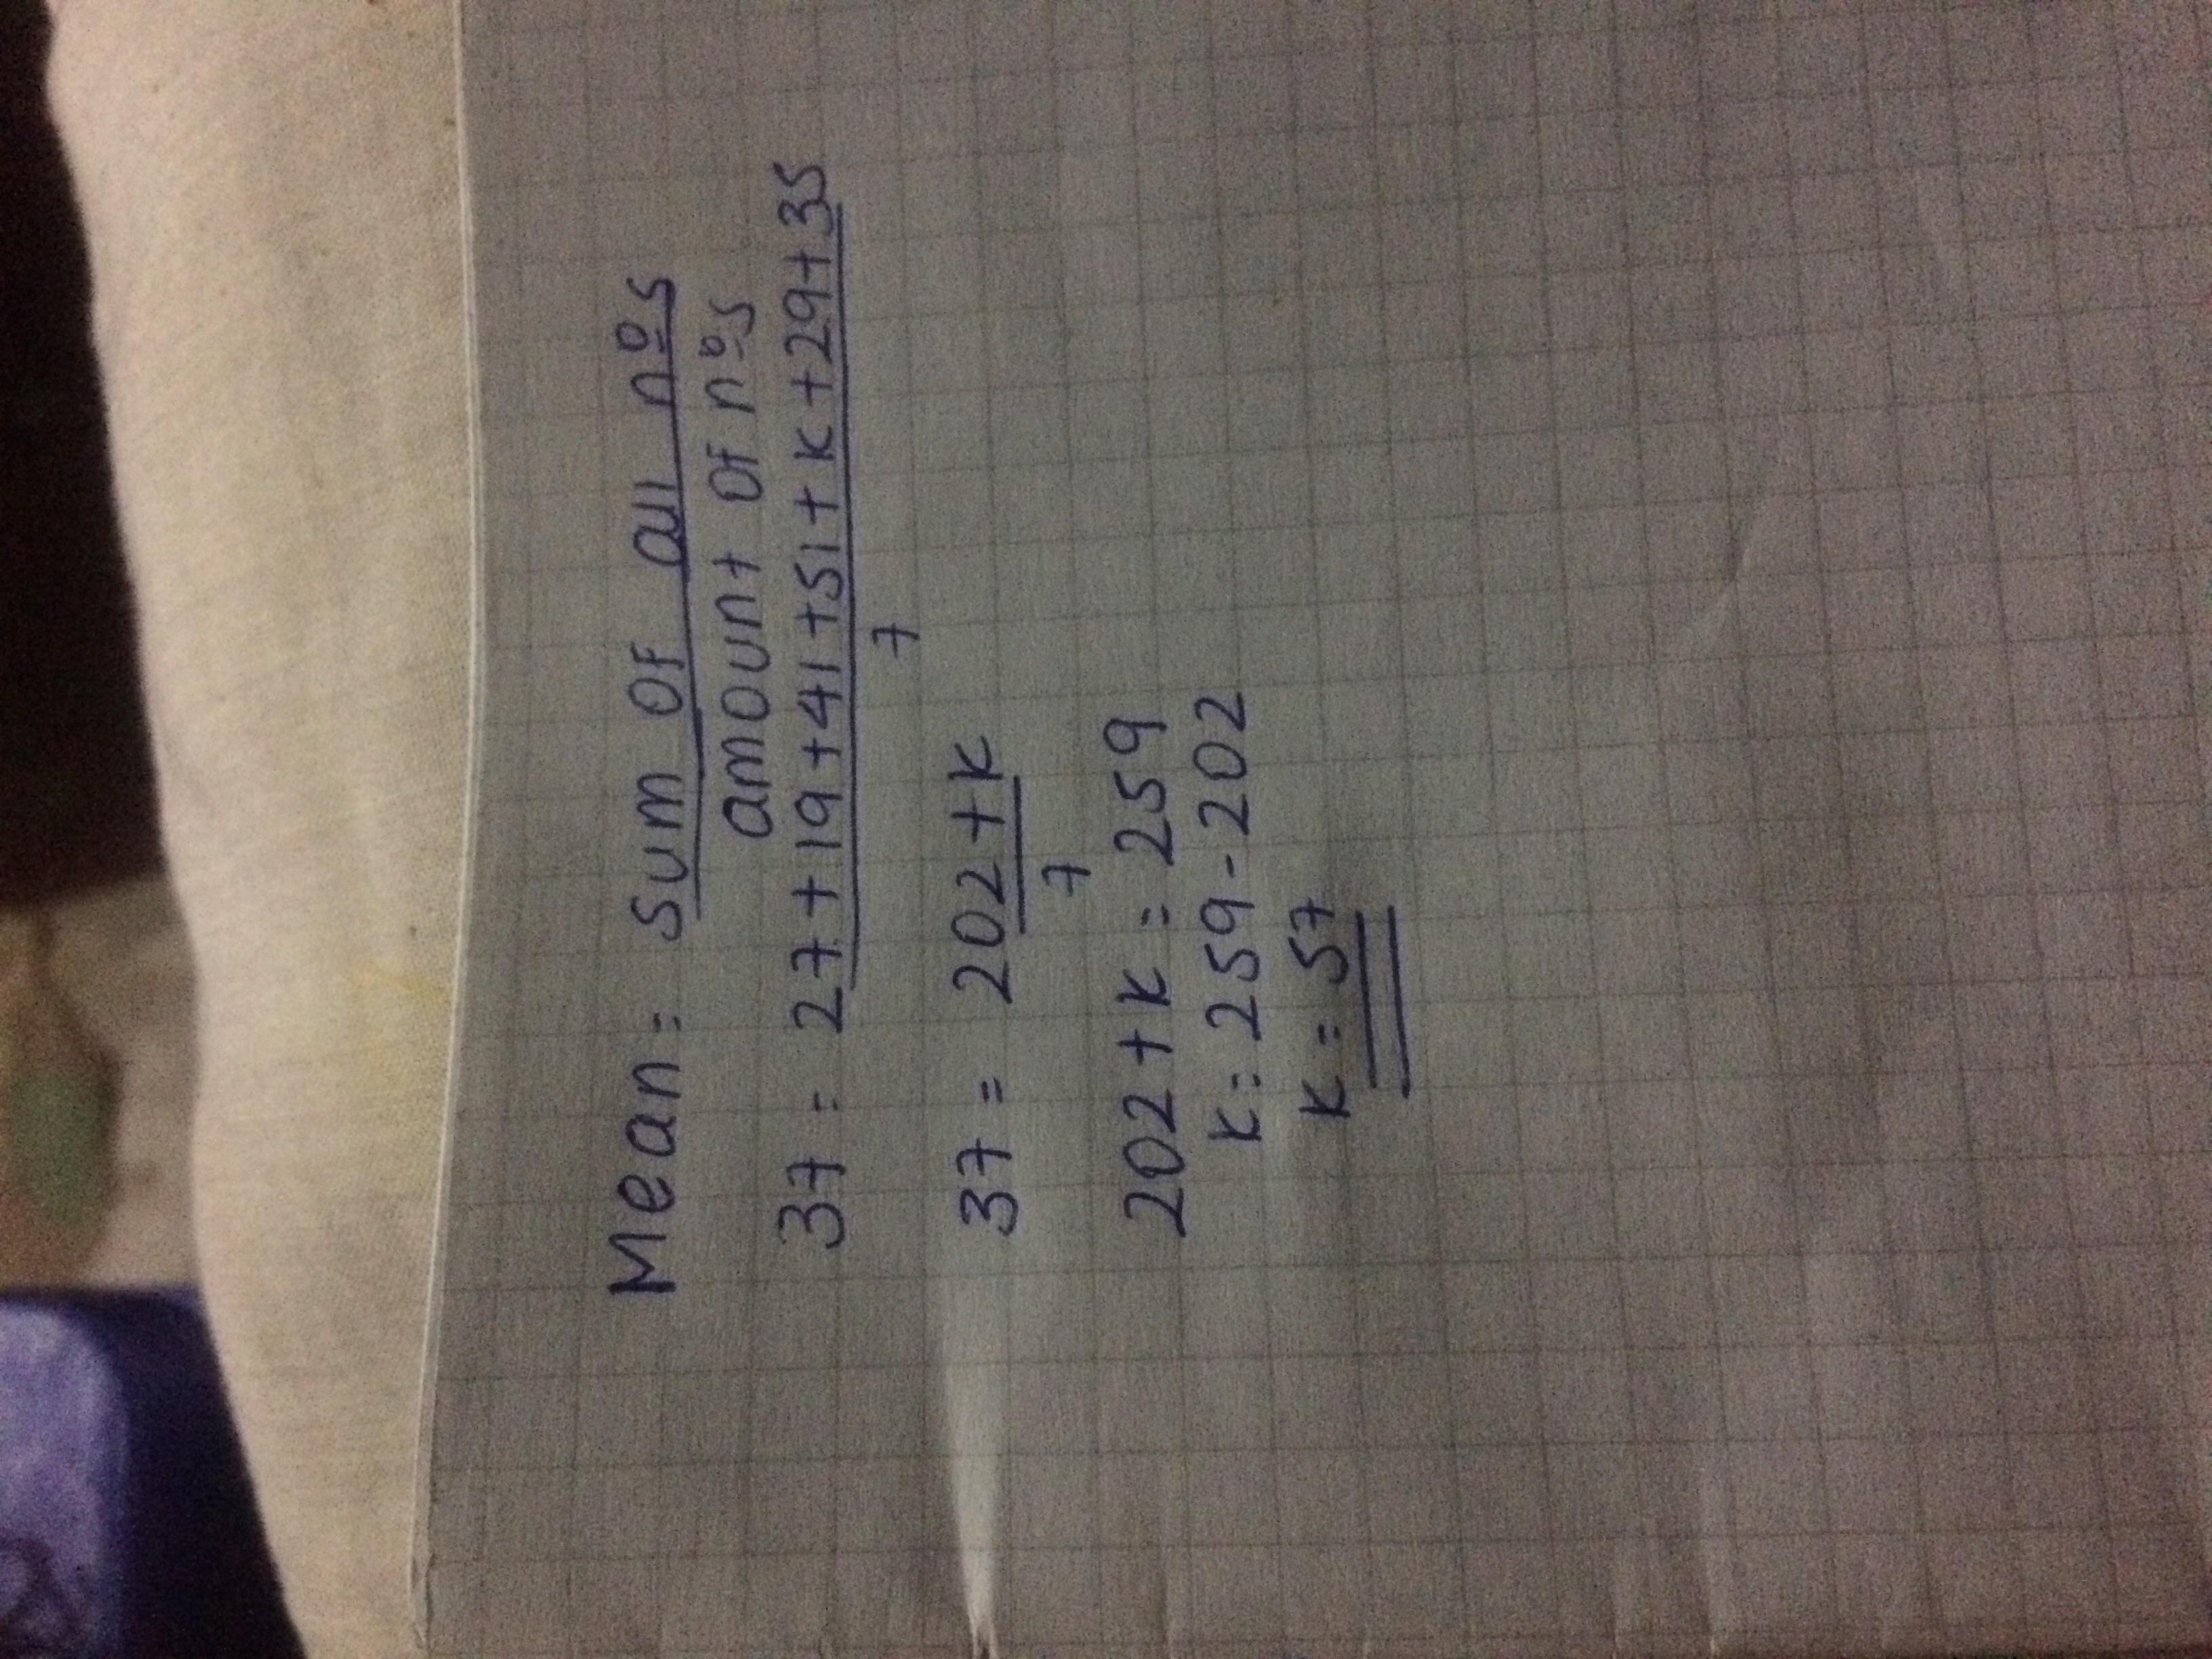 Mean = Sum of all nºs
amount of nºs
37 = 27+19+41+51+K+29+35
7
37 = 202+K
7
202+K = 259
K = 259-202
K = 57